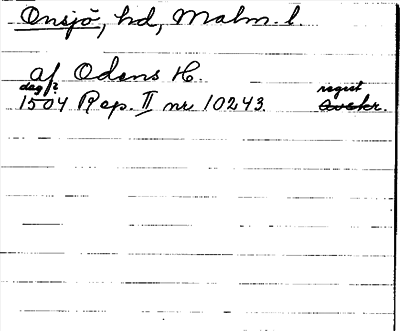 Onsjö, hd, Malm. l.
af Odens H.
dag? regist
1504 Rep. II nr 10243. Avskr.